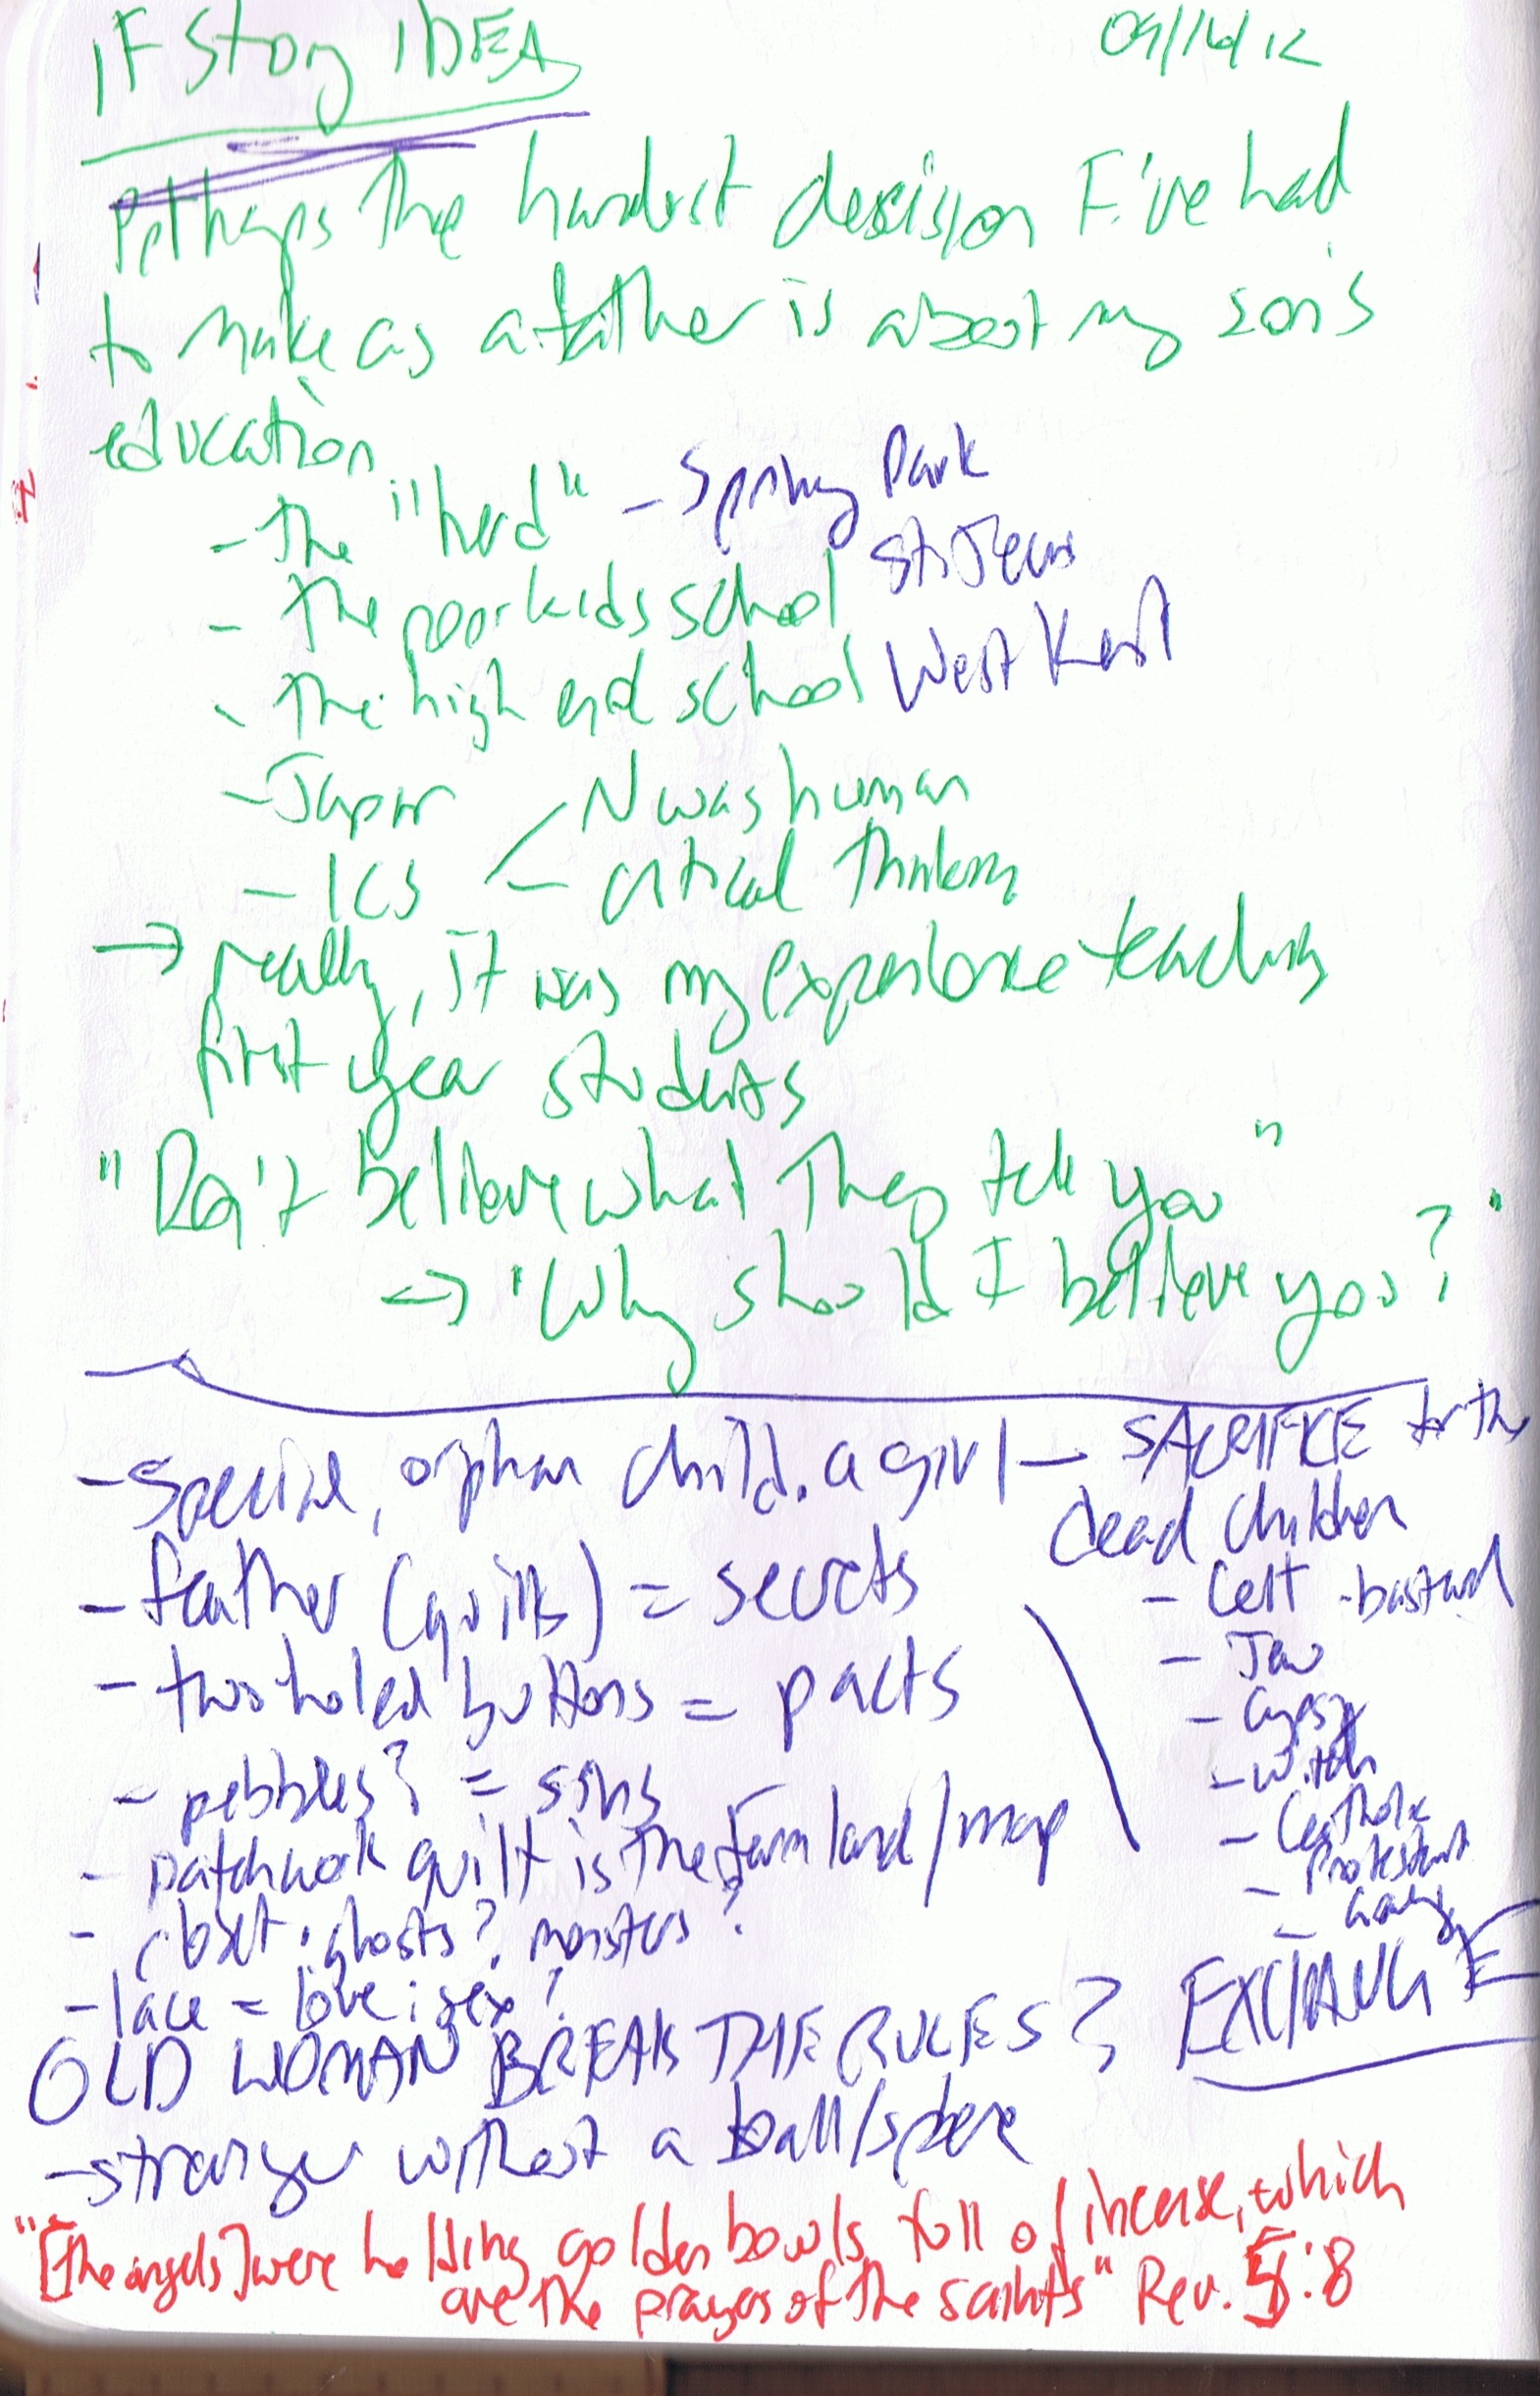 IF Story IDEA
09/16/12
Perhaps the hardest decision I've had
to make as a father is about my son's
education
- the "herd" - Spring Park
- the poor kids school St. Jean
- the high end school West Kent
- Japan
- N was human
- ICS - critical thinking
→ really, it was my experience teaching
first year students
"Don't believe what they tell you"
→ "Why should I believe you?"
- special, orphan child. a girl - SACRIFICE for the
dead children
- feather (quills) = secrets
- Celt - bastard
- two holed buttons = pacts
- Jew
- Gypsy
- pebbles? = sins
- witch
- patchwork quilt is the farm land/map
- Catholic
Protestant
- closet: ghosts? monsters?
- lace = love: sex?
OLD WOMAN BREAK THE RULES? EXCHANGE
- stranger without a ball/sphere
"[The angels] were holding golden bowls full of incense, which
are the prayers of the saints" Rev. 5:8